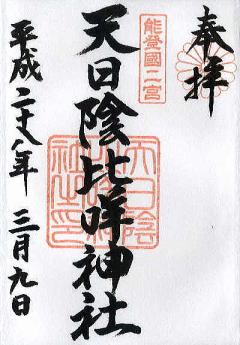 奉拝
能登國二宮
天日陰比咩神社
平成二十八年 三月九日